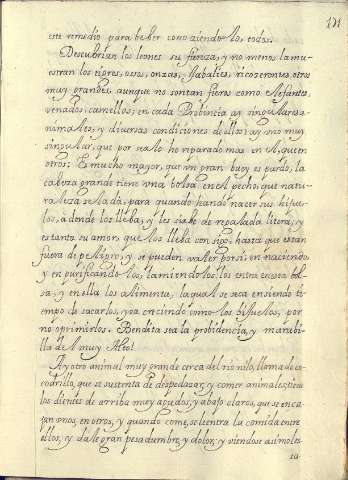 131
este remedio para beber conoziendo los, todos.
Descubrian los leones su fiereza, y no menos la mu-
estran los tigres, ossos, onzas, jabalies, rinozerontes, otros
muy grandes, aunque no son tan fieros como elefantes,
venados, camellos; en cada Provincia ay singulares a-
nimales, y diuersas condiciones dellos; ay vno muy
singular, que por serlo he reparado mas en el, que en
otros: Es mucho mayor, que vn gran buey es pardo, la
cabeza grande tiene vna bolsa en el pecho, que natu-
raleza le da da, para quando han de nacer sus hijue-
los, a donde los lleba, y les sirbe de regalada litera, y
es tanto su amor, que los lleba consigo, hasta que estan
fuera de peligro, y se pueden valer por si, en naciendo,
y en purificandolos, lamiendolos, los entra en esta bol-
sa, y en ella los alimenta, la qual se seca en siendo ti-
empo de sacarlos, y va enciendo como los hijuelos, por
no oprimirlos. Bendita sea la probidencia, y marabi-
lla del muy Alto!
Ay otro animal muy grande cerca del rio nilo, llamado co-
codrillo, que se sustenta de despedazar, y comer animales, tiene
los dientes de arriba muy agudos, y abajo claros, que se enca-
jan vnos, en otros, y quando come, se le entra la comida entre
ellos, y dale gran pesadumbre, y dolor, y viendose a si moles-
ta